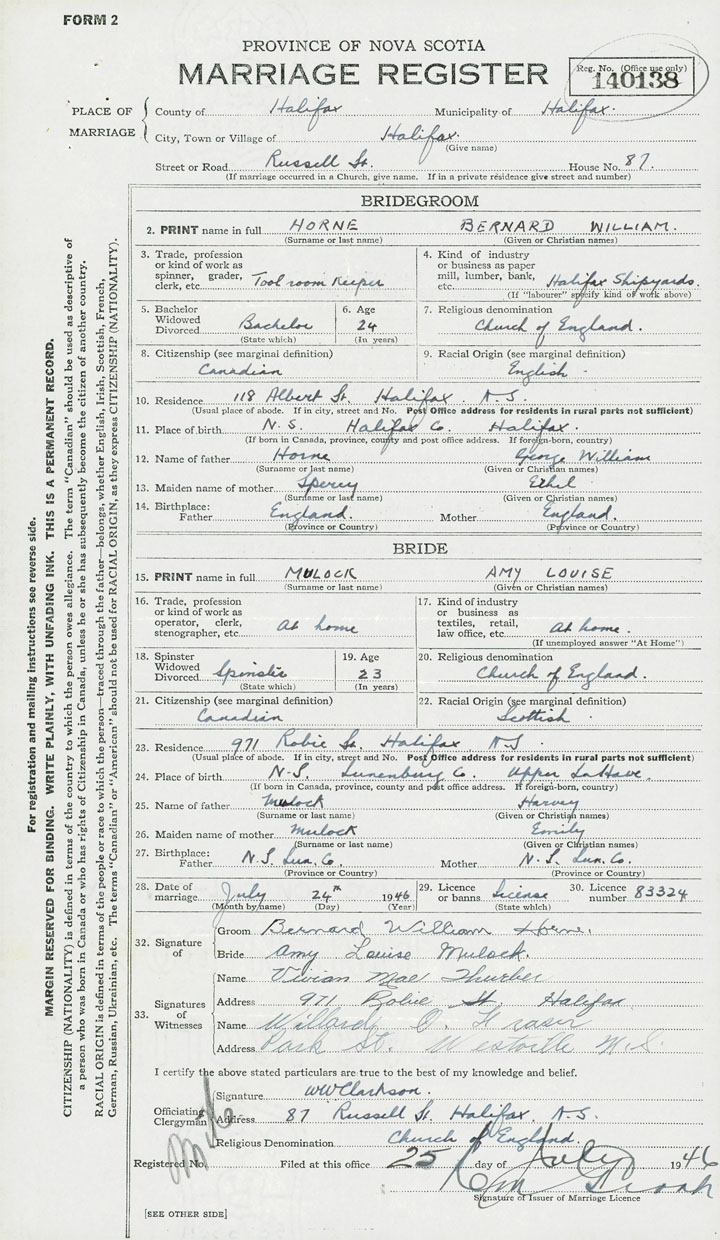 FORM 2
PROVINCE OF NOVA SCOTIA
MARRIAGE REGISTER
Reg. No. (Office use only)
140138
PLACE OF MARRIAGE
County of Halifax Municipality of Halifax.
City, Town or Village of Halifax.
(Give name)
Street or Road Russell St. House No. 87.
(If marriage occurred in a Church, give name. If in a private residence give street and number)
BRIDEGROOM
2. PRINT name in full HORNE BERNARD WILLIAM.
(Surname or last name) (Given or Christian names)
3. Trade, profession or kind of work as spinner, grader, clerk, etc. Tool room Keeper
4. Kind of industry or business as paper mill, lumber, bank, etc. Halifax Shipyards.
(If "labourer" specify kind of work above)
5. Bachelor Widowed Divorced Bachelor
(State which)
6. Age 24
(In years)
7. Religious denomination
Church of England.
8. Citizenship (see marginal definition)
Canadian
9. Racial Origin (see marginal definition)
English
10. Residence 118 Albert St. Halifax N.S.
(Usual place of abode. If in city, street and No. Post Office address for residents in rural parts not sufficient)
11. Place of birth N.S. Halifax Co. Halifax.
(If born in Canada, province, county and post office address. If foreign-born, country)
12. Name of father Horne George William
(Surname or last name) (Given or Christian names)
13. Maiden name of mother Sperry Ethil
(Surname or last name) (Given or Christian names)
14. Birthplace: Father England. Mother England.
(Province or Country) (Province or Country)
BRIDE
15. PRINT name in full MULOCK AMY LOUISE
(Surname or last name) (Given or Christian names)
16. Trade, profession or kind of work as operator, clerk, stenographer, etc. At home
17. Kind of industry or business as textiles, retail, law office, etc. At home.
(If unemployed answer "At Home")
18. Spinster Widowed Divorced Spinster
(State which)
19. Age 23
(In years)
20. Religious denomination
Church of England.
21. Citizenship (see marginal definition)
Canadian
22. Racial Origin (see marginal definition)
Scottish
23. Residence 971 Robie St. Halifax N.S.
(Usual place of abode. If in city, street and No. Post Office address for residents in rural parts not sufficient)
24. Place of birth N.S. Lunenburg Co. Upper LaHave.
(If born in Canada, province, county and post office address. If foreign-born, country)
25. Name of father Mulock Harvey
(Surname or last name) (Given or Christian names)
26. Maiden name of mother Mulock Emily
(Surname or last name) (Given or Christian names)
27. Birthplace: Father N.S. Lun. Co. Mother N.S. Lun. Co.
(Province or Country) (Province or Country)
28. Date of marriage July 24th 1946
(Month by name) (Day) (Year)
29. Licence or banns License
(State which)
30. Licence number 83324
32. Signature of
Groom Bernard William Horne.
Bride Amy Louise Mulock.
33. Signatures of Witnesses
Name Vivian Mae Thurber
Address 971 Robie St. Halifax
Name Willard O. Fraser
Address Park St. Westville N.S.
I certify the above stated particulars are true to the best of my knowledge and belief.
Officiating Clergyman
Signature WWClarkson.
Address 87 Russell St. Halifax, N.S.
Religious Denomination Church of England.
Registered No. Filed at this office 25 day of July 1946
Signature of Issuer of Marriage Licence
[SEE OTHER SIDE]
For registration and mailing instructions see reverse side.
MARGIN RESERVED FOR BINDING. WRITE PLAINLY, WITH UNFADING INK. THIS IS A PERMANENT RECORD.
CITIZENSHIP (NATIONALITY) is defined in terms of the country to which the person owes allegiance. The term "Canadian" should be used as descriptive of
a person who was born in Canada or who has rights of Citizenship in Canada, unless he or she has subsequently become the citizen of another country.
RACIAL ORIGIN is defined in terms of the people or race to which the person—traced through the father—belongs, whether English, Irish, Scottish, French,
German, Russian, Ukrainian, etc. The terms "Canadian" or "American" should not be used for RACIAL ORIGIN, as they express CITIZENSHIP (NATIONALITY).